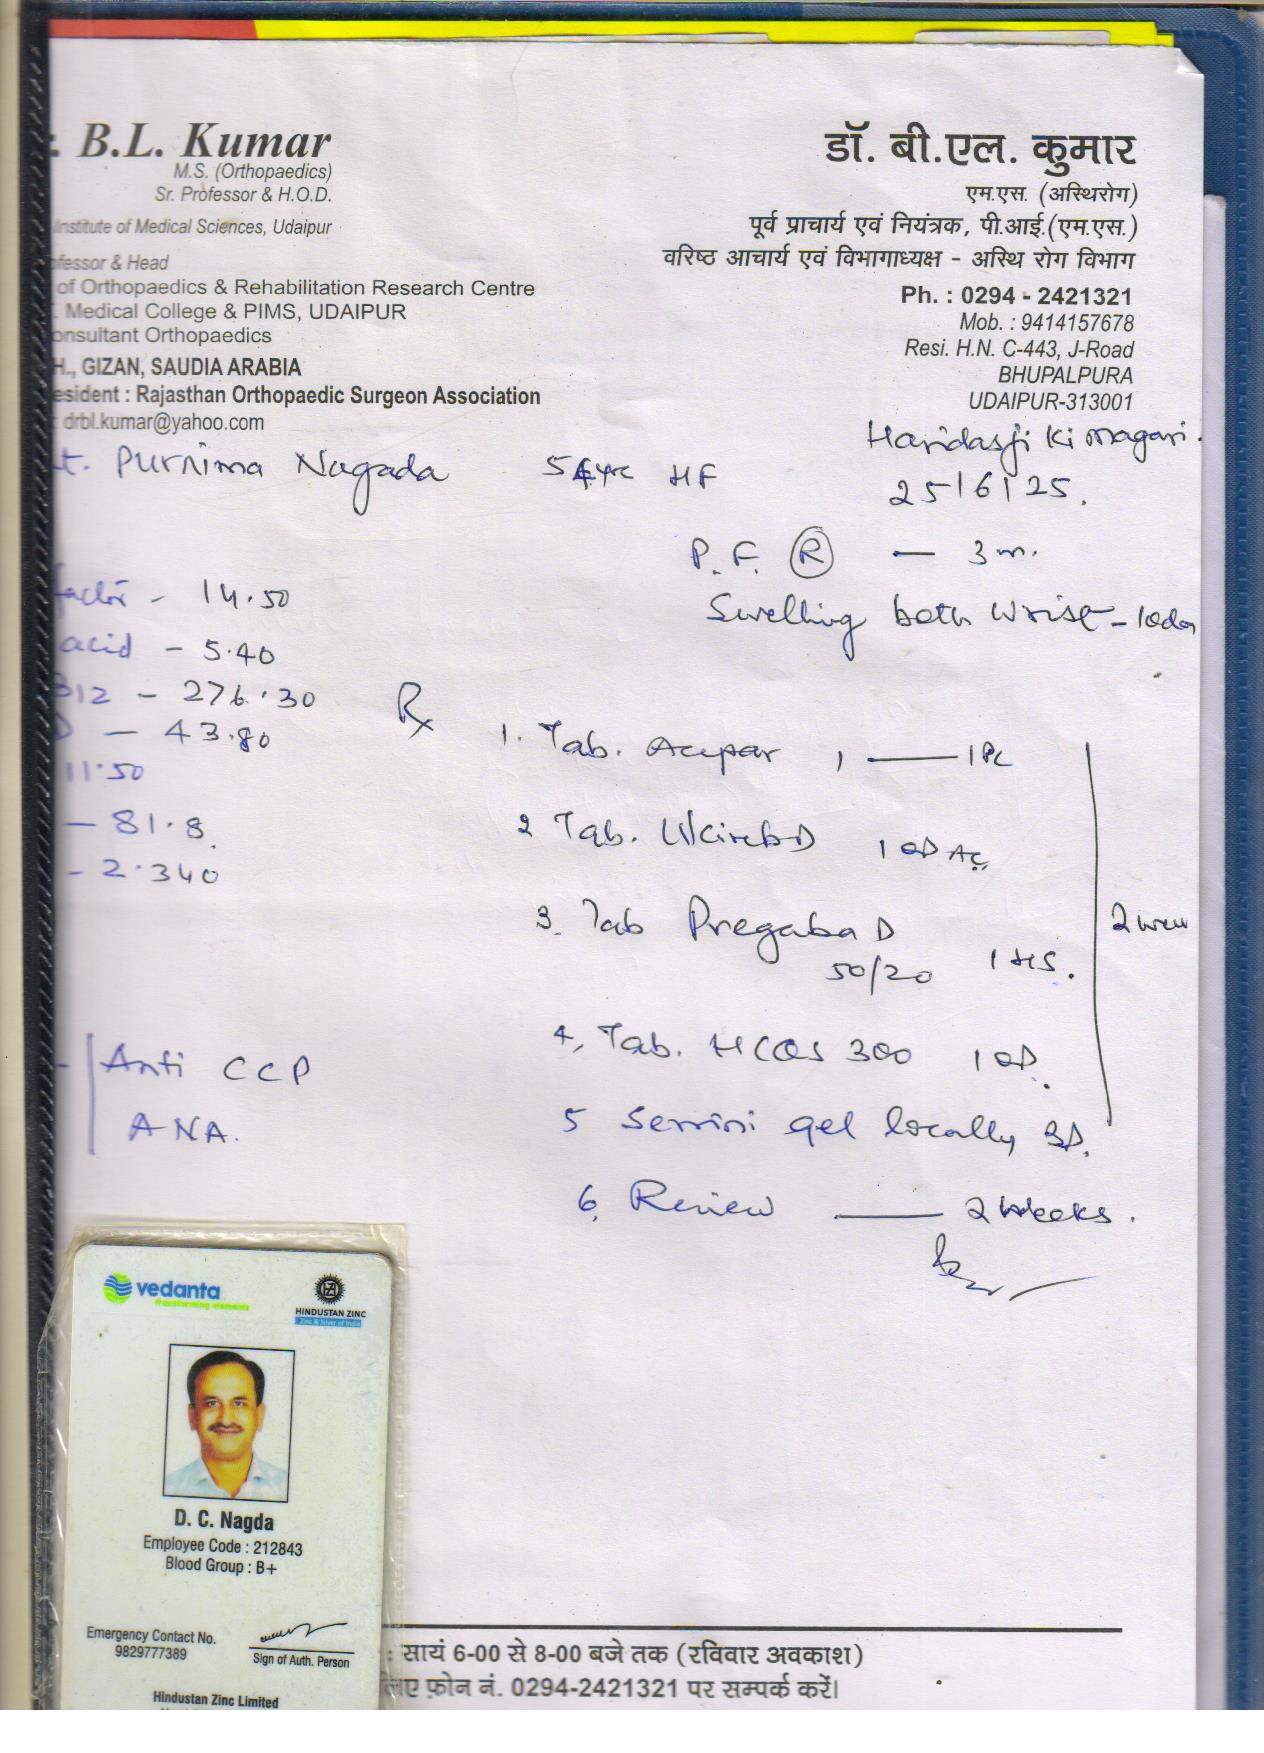 . B.L. Kumar
M.S. (Orthopaedics)
Sr. Professor & H.O.D.
Institute of Medical Sciences, Udaipur
fessor & Head
of Orthopaedics & Rehabilitation Research Centre
Medical College & PIMS, UDAIPUR
onsultant Orthopaedics
H., GIZAN, SAUDIA ARABIA
esident : Rajasthan Orthopaedic Surgeon Association
: drbl.kumar@yahoo.com
डॉ. बी.एल. कुमार
एम.एस. (अस्थिरोग)
पूर्व प्राचार्य एवं नियंत्रक, पी.आई.(एम.एस.)
वरिष्ठ आचार्य एवं विभागाध्यक्ष - अस्थि रोग विभाग
Ph. : 0294 - 2421321
Mob. : 9414157678
Resi. H.N. C-443, J-Road
BHUPALPURA
UDAIPUR-313001
Haridasji Ki magari.
t. Purnima Nagada HF
25/6/25.
P.F. R — 3 m.
Swelling both Wrist -
factor - 14.50
acid - 5.40
B12 - 276.30
D - 43.80
11.50
- 81.8
- 2.340
Rx
1. Tab. 1 —
2 Tab. 1 OD AC
3. Tab Pregaba D
50/20 1 HS.
4, Tab. HCQS 300 1 OD.
5 gel locally
6. Review — 2 weeks.
2
Anti CCP
ANA.
vedanta
transforming elements
HINDUSTAN ZINC
Zinc & Silver of India
D. C. Nagda
Employee Code : 212843
Blood Group : B+
Emergency Contact No.
9829777389
Sign of Auth. Person
Hindustan Zinc Limited
: सायं 6-00 से 8-00 बजे तक (रविवार अवकाश)
लिए फ़ोन नं. 0294-2421321 पर सम्पर्क करें।